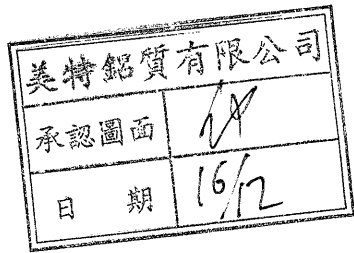 美特鋁質有限公司
承認圖面
日 期 16/12